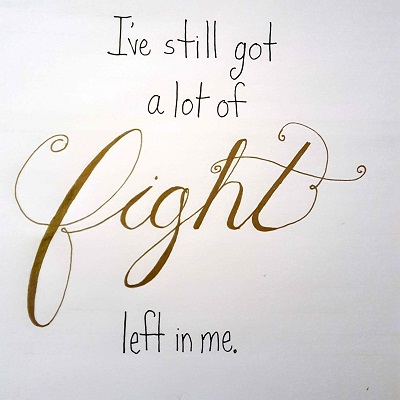 I've still got
a lot of
fight
left in me.